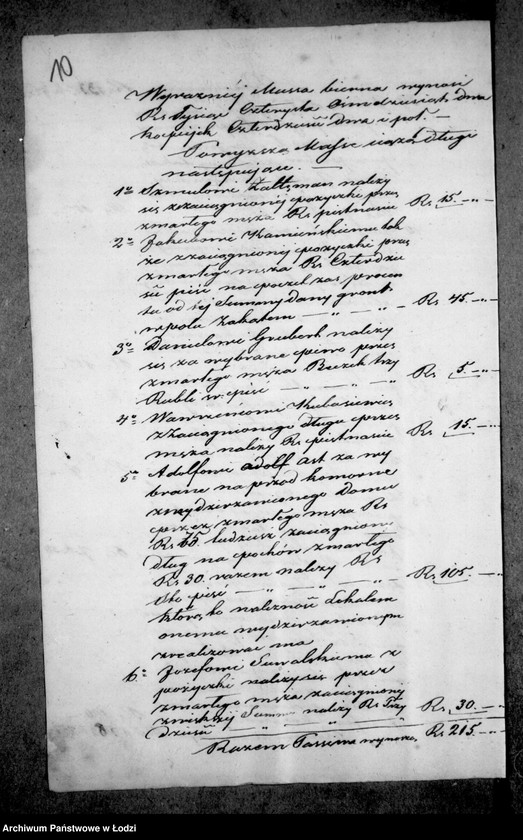 10
Wyrazniej Massa bierna wynosi
Rs Tysiąc Czterysta Osiemdziesiąt dwa
kopiejek Czterdzieści dwa i pół. —
Powyższą Massę ciążą długi
następujące. —
1o Szmulowi Zaltzman należy
się z zaciągnionej pożyczki przez
zmarłego męża Rs piętnaście Rs 15. — „ —
2o Jakubowi Kamieńskiemu tak
że z zaciągnionej pożyczki przez
zmarłego męża Rs Czterdzie
ści pięć na poczet zaś procen
tu od tej Summy dany grunt
w polu Zakałem — „ — „ — Rs 45. — „ —
3o Danielowi Grubert należy
się za wybrane piwo przez
zmarłego męża Beczek trzy
Rubli sr. pięć — „ — „ — Rs 5. — „ —
4o Wawrzencowi Kubasiewicz
z zaciągnionego długu przez
męża należy Rs piętnaście Rs 15. — „ —
5o Adolfowi adolf Ast za wy
brane na przód komorne
z wydzirzawionego Domu
przez zmarłego męża Rs
Rs 75 tudzież zaciągnion
dług na pochów zmarłego
Rs 30. razem należy Rs
sto pięć — „ — „ — Rs 105. — „ —
którą to należność Lokalem
onemu wydzirzawionym
zrealizować ma
6o Jozefowi Suwalskiemu z
pożyczki należy się przez
zmarłego męża zaciągnionej
zwiększy Summ należy Rs Trzy
dzieści — „ — „ — Rs 30. —
Razem Passiwa wynoszą Rs 215 — „
Archiwum Państwowe w Łodzi